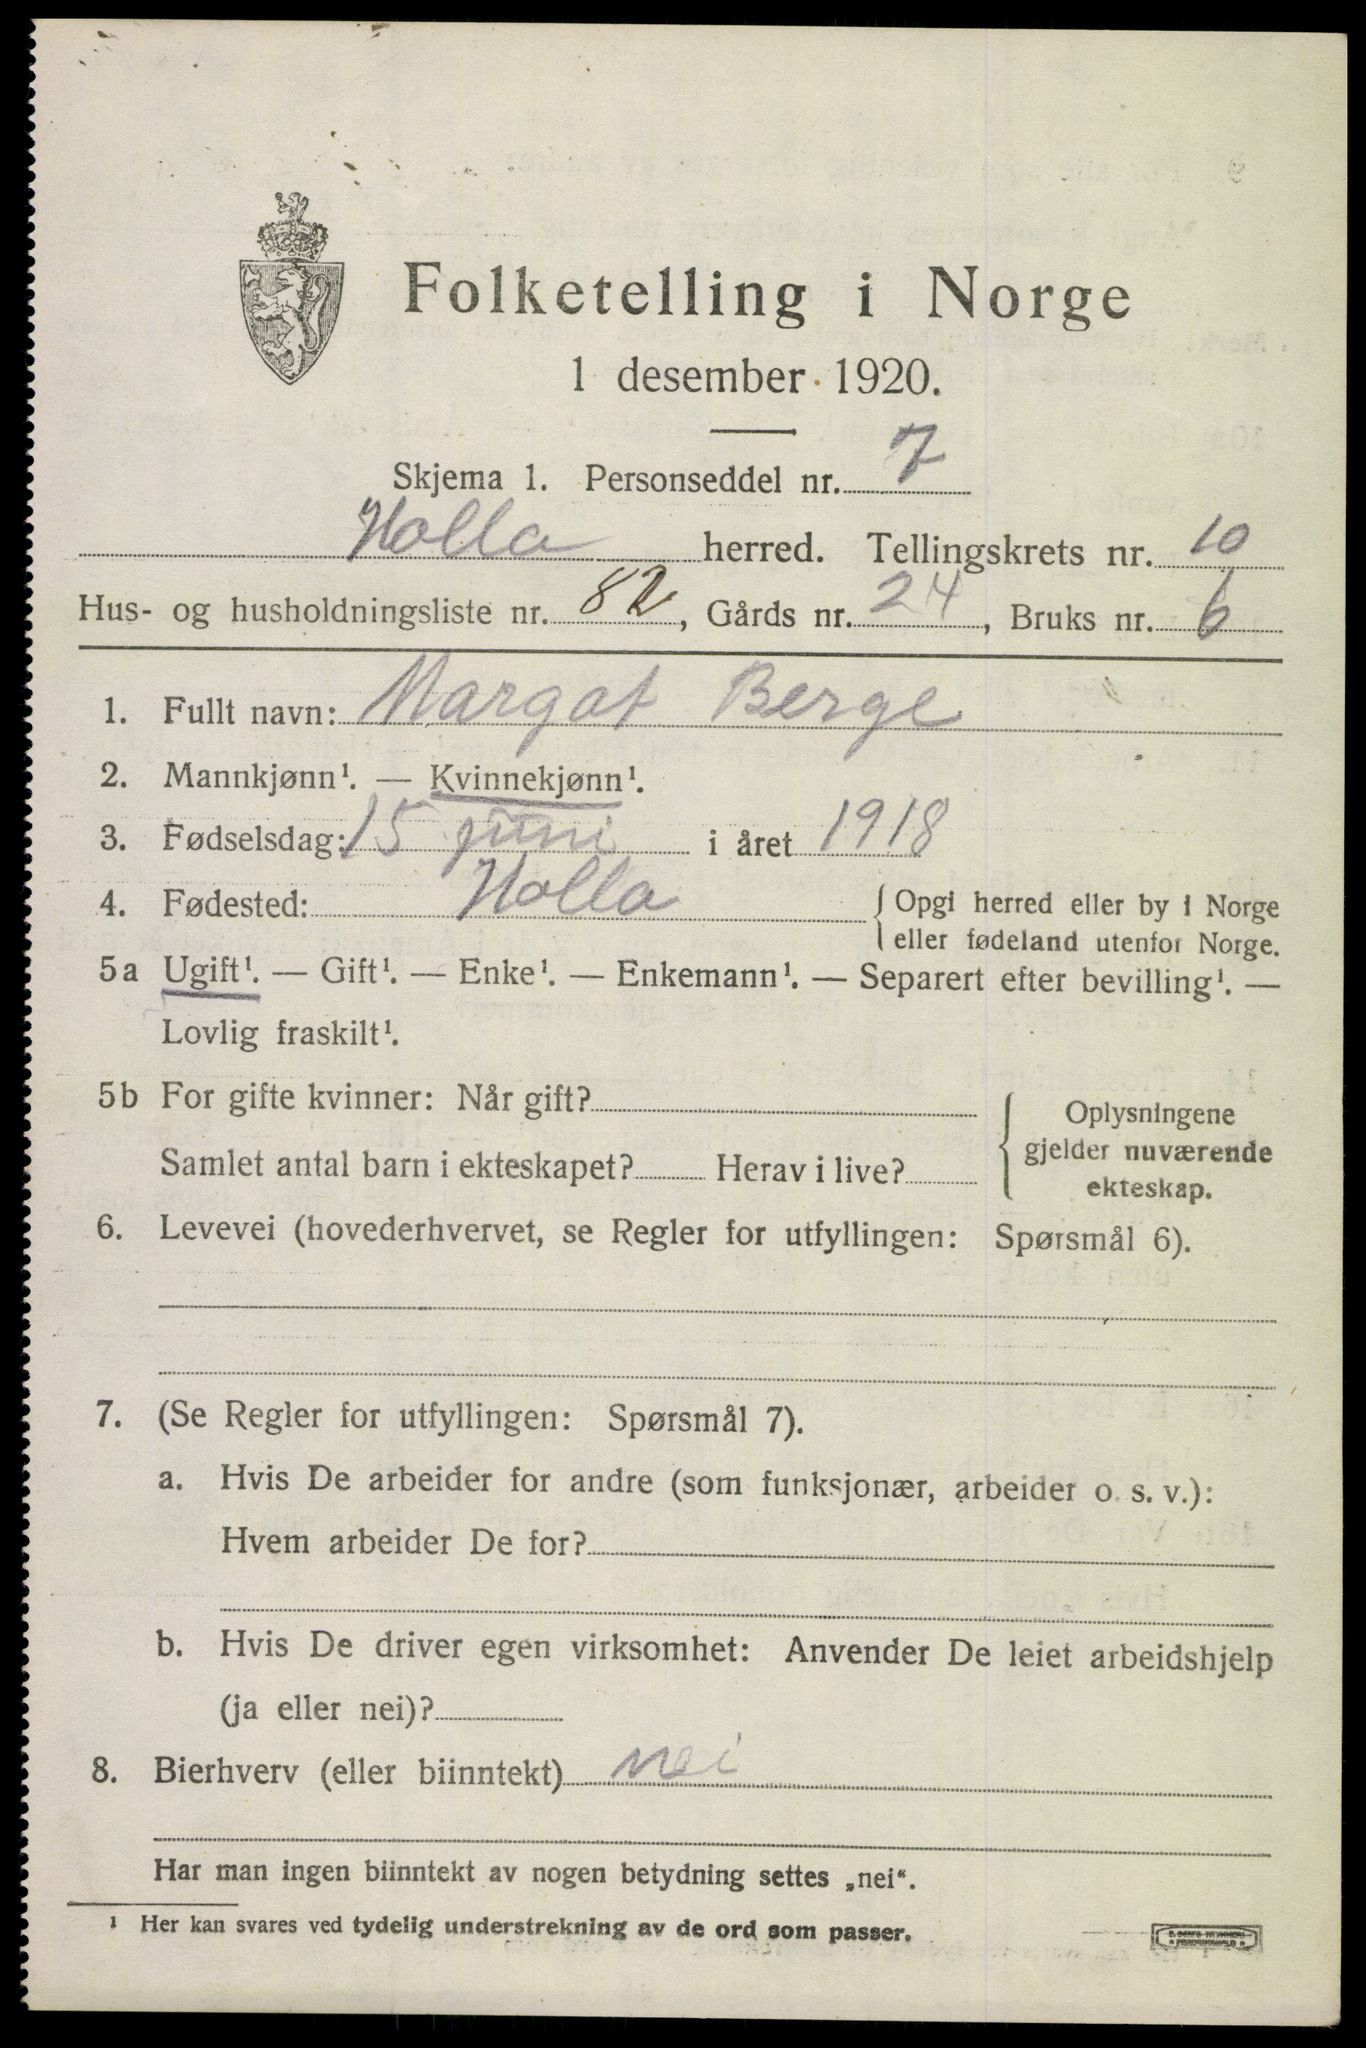 Folketelling i Norge
1 desember 1920.
Skjema 1. Personseddel nr. 7
Holla herred. Tellingskrets nr. 10
Hus- og husholdningsliste nr. 82, Gårds nr. 24, Bruks nr. 6
1. Fullt navn: Margot Berge
2. Mannkjønn¹. — Kvinnekjønn¹.
3. Fødselsdag: 15 juni i året 1918
4. Fødested: Holla { Opgi herred eller by i Norge
eller fødeland utenfor Norge.
5a Ugift¹. — Gift¹. — Enke¹. — Enkemann¹. — Separert efter bevilling¹. —
Lovlig fraskilt¹.
5b For gifte kvinner: Når gift?
Samlet antal barn i ekteskapet? Herav i live?
Oplysningene
gjelder nuværende
ekteskap.
6. Levevei (hovederhvervet, se Regler for utfyllingen: Spørsmål 6).
7. (Se Regler for utfyllingen: Spørsmål 7).
a. Hvis De arbeider for andre (som funksjonær, arbeider o. s. v.):
Hvem arbeider De for?
b. Hvis De driver egen virksomhet: Anvender De leiet arbeidshjelp
(ja eller nei)?
8. Bierhverv (eller biinntekt) nei
Har man ingen biinntekt av nogen betydning settes „nei“.
¹ Her kan svares ved tydelig understrekning av de ord som passer.